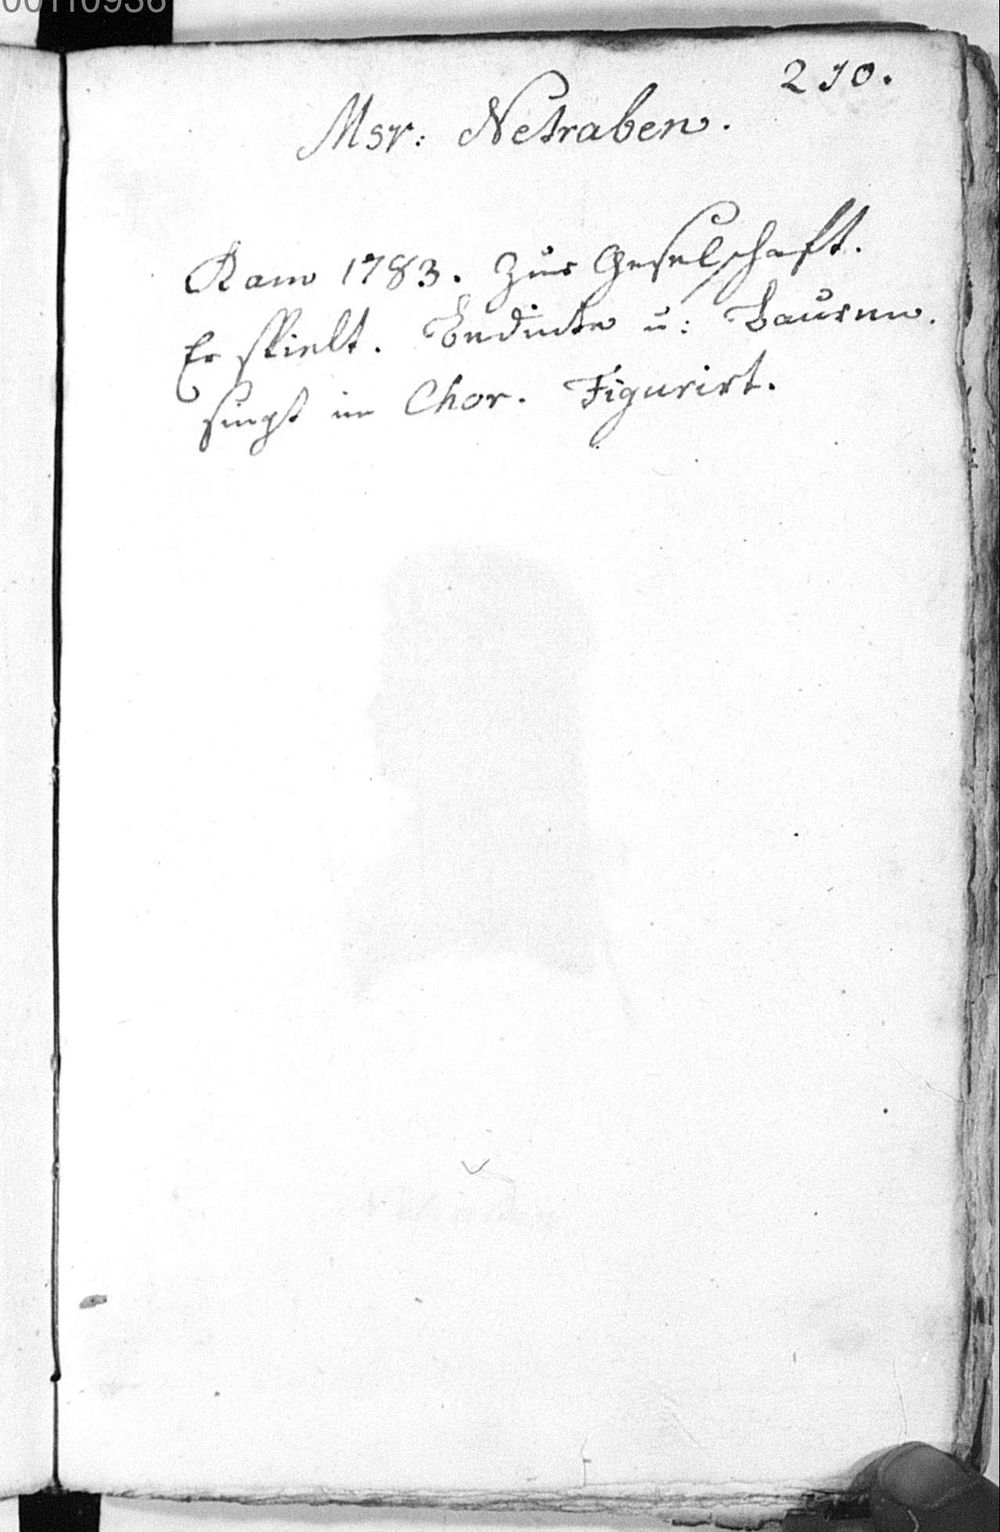 00110936
210.
Msr: Netraben.
Kam 1783. Zur Geselschaft.
Er spielt. Bedinte u: Bauren.
singt im Chor. Figurirt.